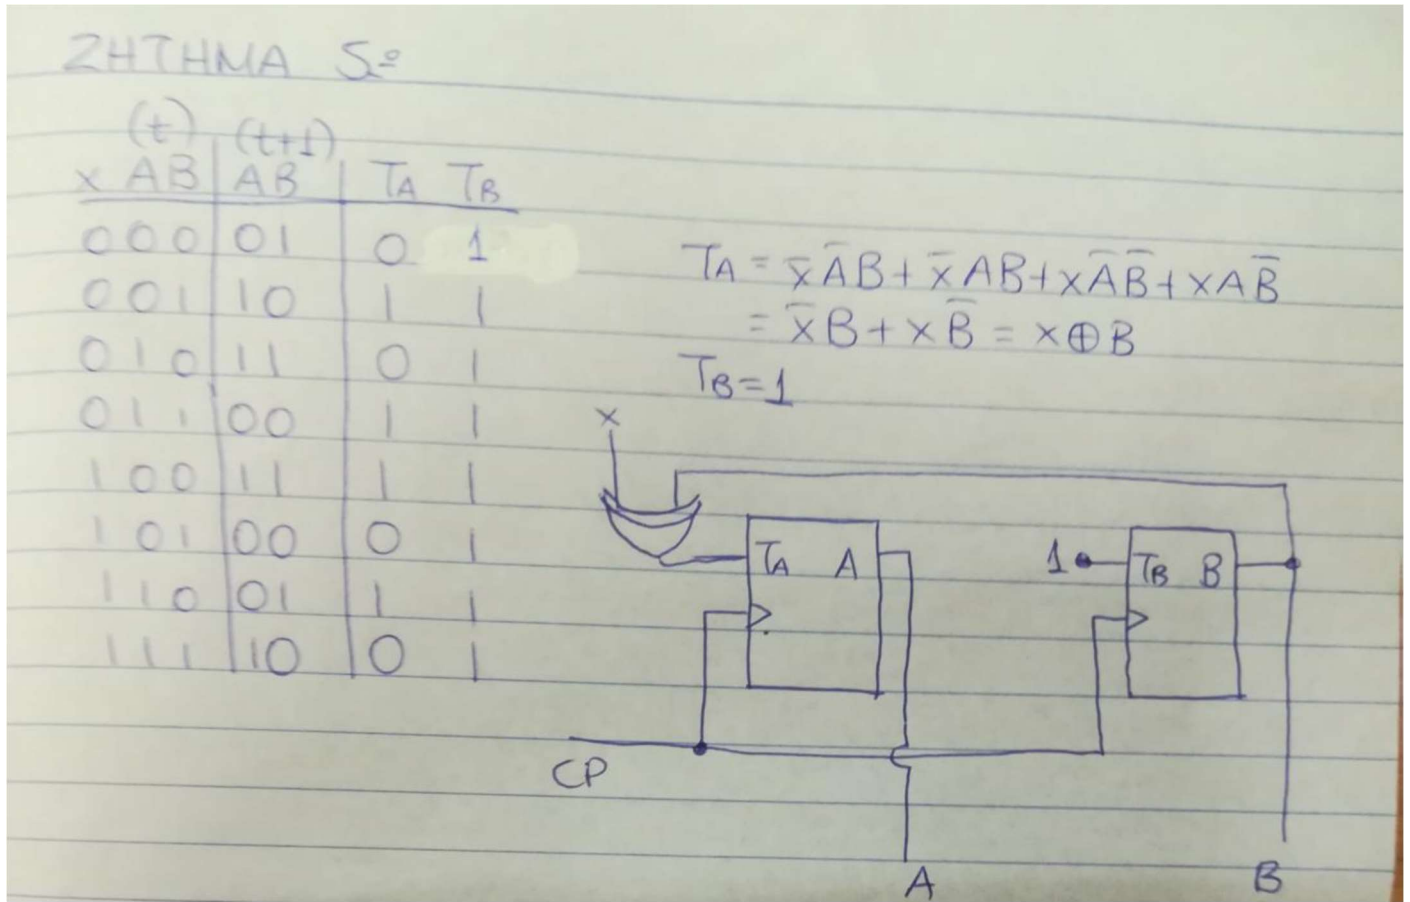 ΖΗΤΗΜΑ 5º
(t) (t+1)
x AB AB TA TB
000 01 0 1
001 10 1 1
010 11 0 1
011 00 1 1
100 11 1 1
101 00 0 1
110 01 1 1
111 10 0 1
TA = x̄ĀB + x̄AB + xĀB̄ + xAB̄
= x̄B + xB̄ = x⊕B
TB=1
x
TA A
1 TB B
CP
A
B